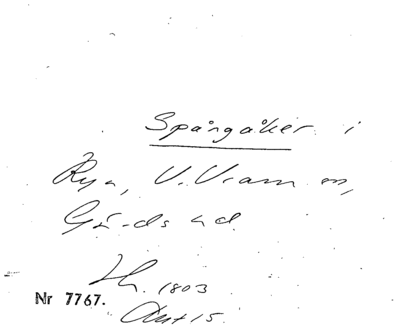 Spångåker i
V. Vram sn,
Gärds hd.
1803
Nr 7767.